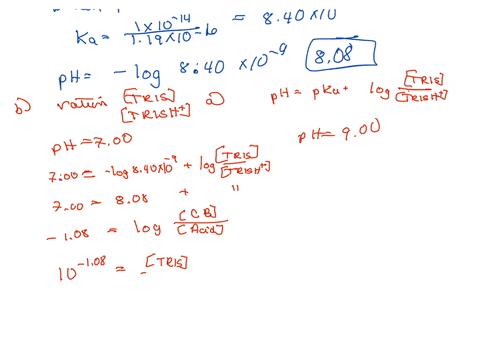 Ka = 1×10^-14 / 1.19×10^-6 = 8.40×10
pH = -log 8.40 ×10^-9 8.08
b) ration [TRIS] / [TRISH+] a) pH = pKa + log [TRIS] / [TRISH+]
pH = 7.00 pH = 9.00
7.00 = -log 8.40×10^-9 + log [TRIS] / [TRISH+]
7.00 = 8.08 + "
-1.08 = log [CB] / [Acid]
10^-1.08 = [TRIS]